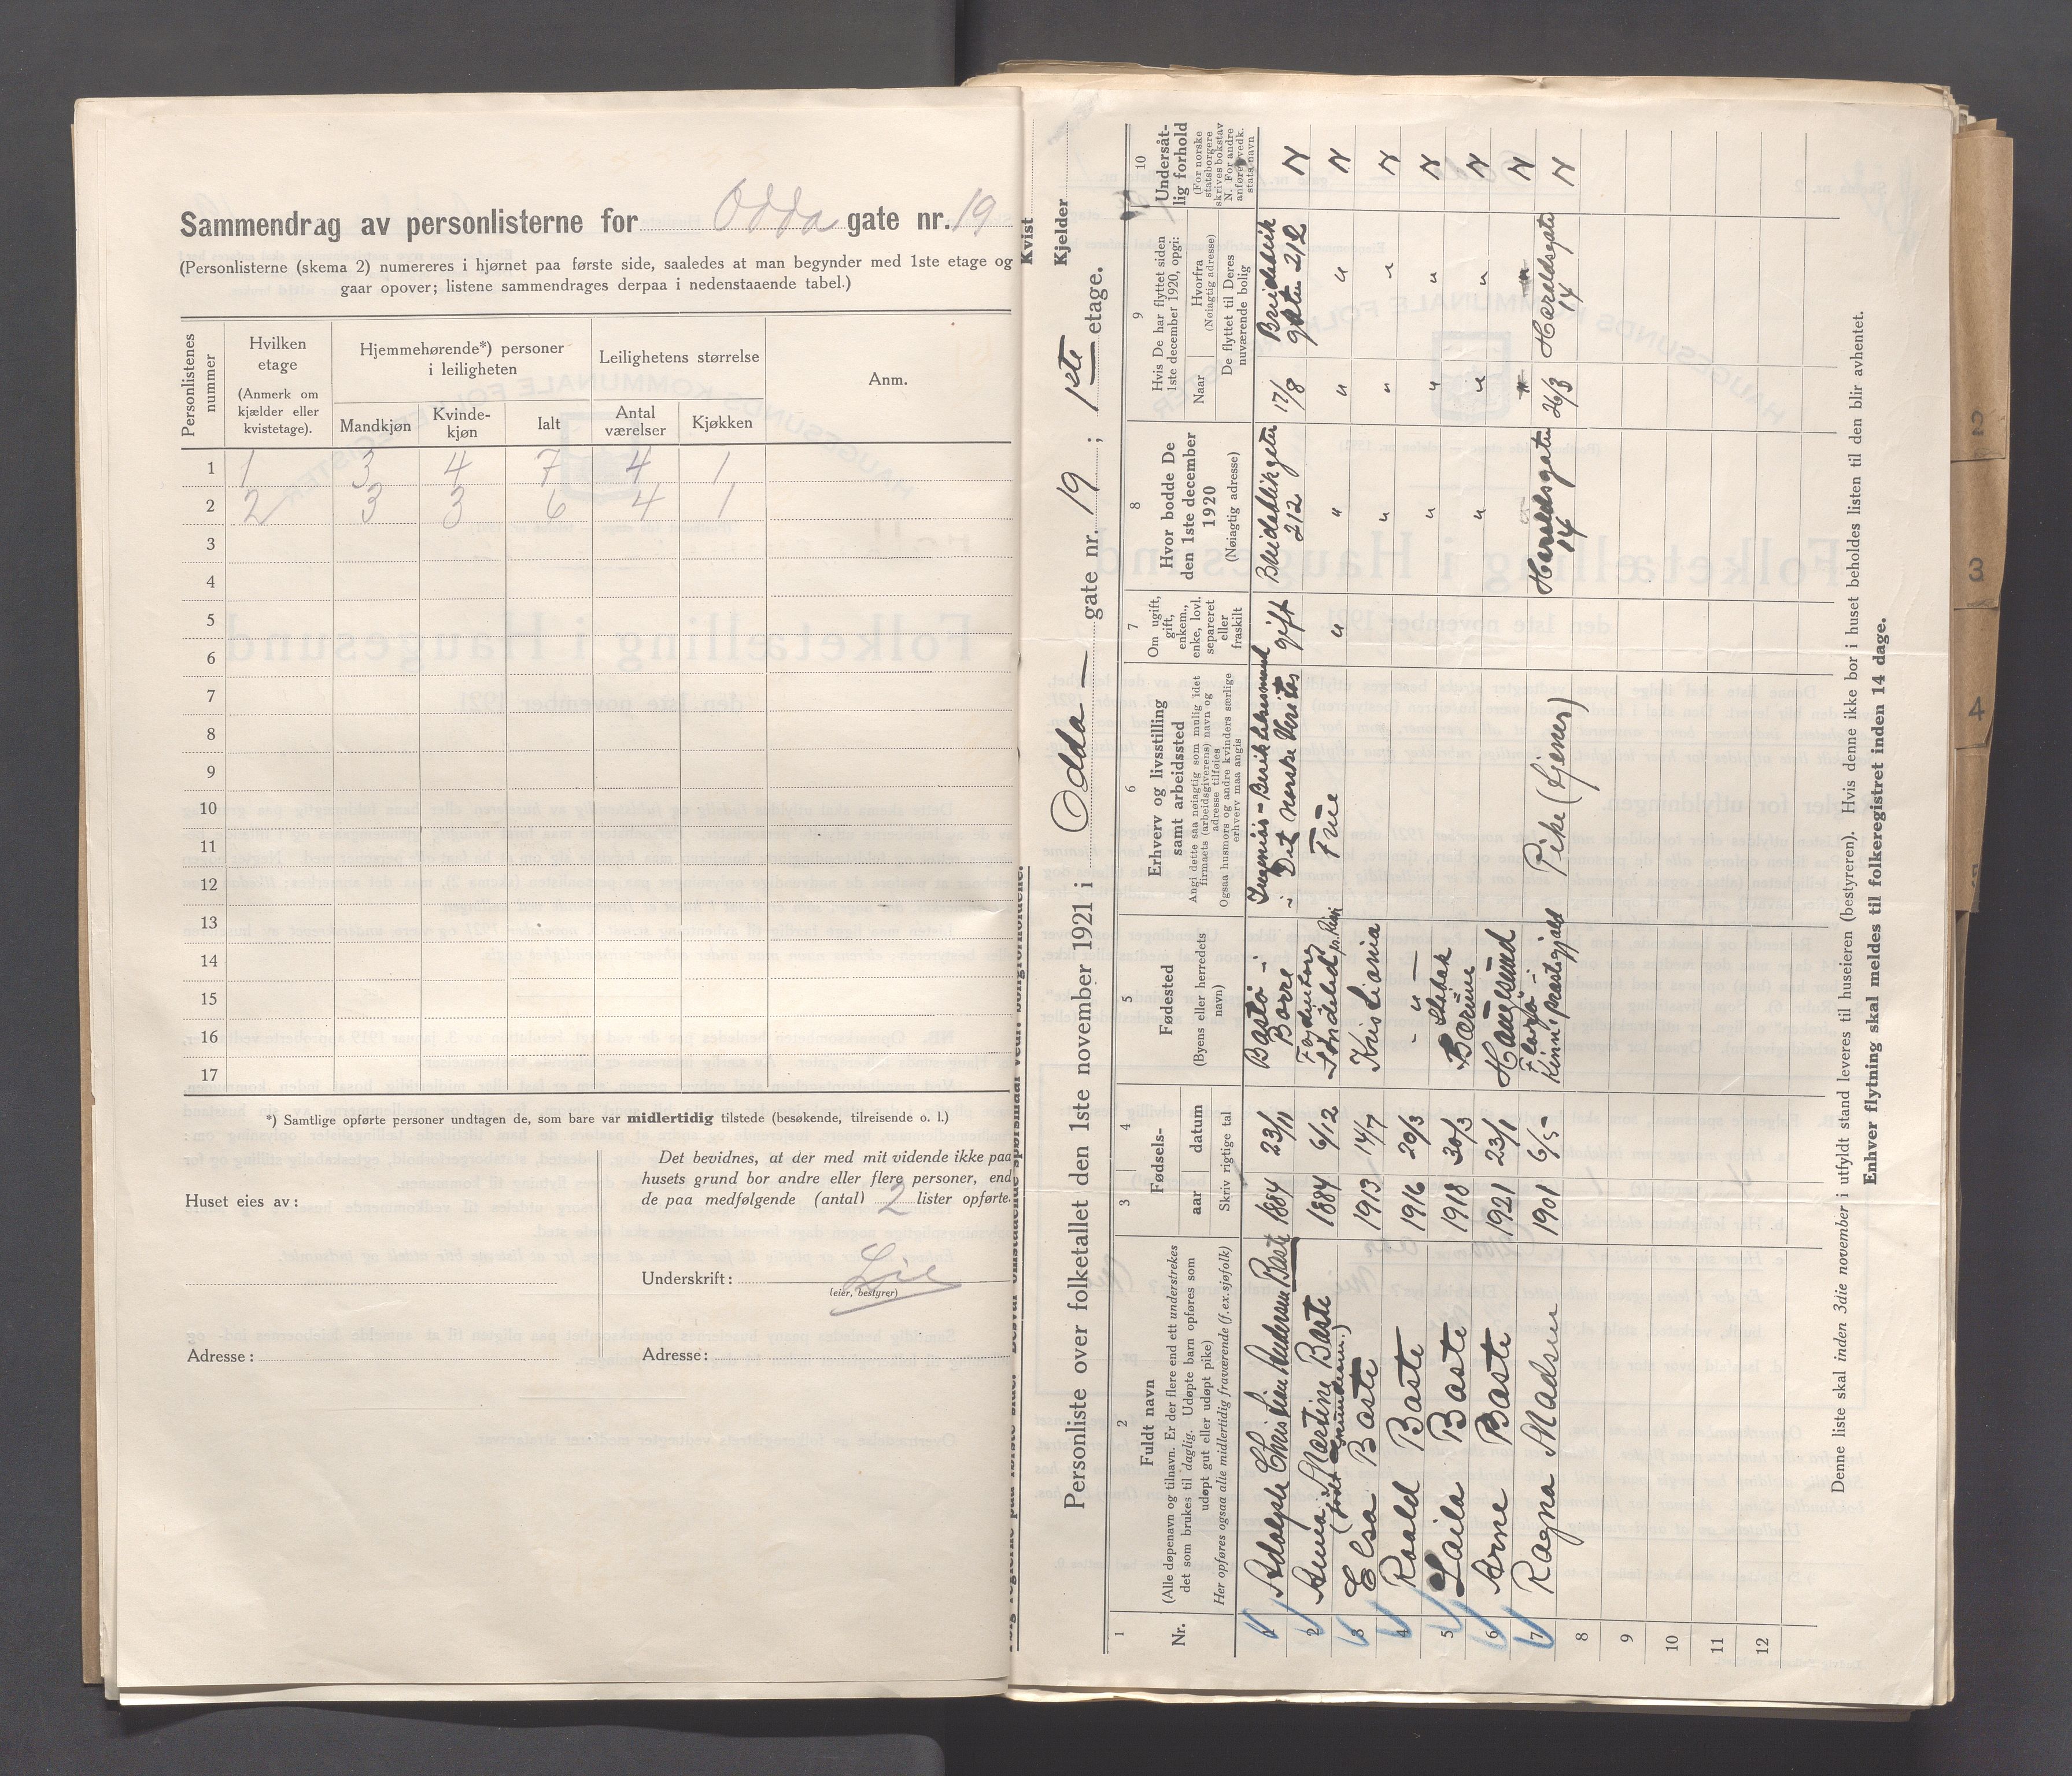 Sammendrag av personlisterne for Odda gate nr. 19
(Personlisterne (skema 2) numereres i hjørnet paa første side, saaledes at man begynder med 1ste etage og
gaar opover; listene sammendrages derpaa i nedenstaaende tabel.)
Personlistenes nummer
Hvilken etage
(Anmerk om kjælder eller kvistetage).
Hjemmehørende*) personer i leiligheten
Mandkjøn
Kvindekjøn
Ialt
Leilighetens størrelse
Antal værelser
Kjøkken
Anm.
1 1 3 4 7 4 1
2 2 3 3 6 4 1
3
4
5
6
7
8
9
10
11
12
13
14
15
16
17
*) Samtlige opførte personer undtagen de, som bare var midlertidig tilstede (besøkende, tilreisende o. l.)
Huset eies av:
Adresse:
Det bevidnes, at der med mit vidende ikke paa
husets grund bor andre eller flere personer, end
de paa medfølgende (antal) 2 lister opførte.
Underskrift: Lie
(eier, bestyrer)
Adresse:
Kvist
Kjelder
Personliste over folketallet den 1ste november 1921 i Odda gate nr. 19; 1ste etage.
1
Nr.
2
Fuldt navn
(Alle døpenavn og tilnavn. Er der flere end ett understrekes
det som brukes til daglig. Udøpte barn opføres som
udøpt gut eller udøpt pike)
Her opføres ogsaa alle midlertidig fraværende (f.ex. sjøfolk)
3 4
Fødsels-
aar datum
Skriv rigtige tal
5
Fødested
(Byens eller herredets navn)
6
Erhverv og livsstilling
samt arbeidssted
Angi dette saa nøiagtig som mulig idet
firmaets (arbeidsgiverens) navn og
adresse tilføies
Ogsaa husmors og andre kvinders særlige
erhverv maa angis
7
Om ugift,
gift,
enkem.,
enke, lovl.
separeret
eller
fraskilt
8
Hvor bodde De
den 1ste december
1920
(Nøiagtig adresse)
9
Hvis De har flyttet siden
1ste december 1920, opgi:
Naar
Hvorfra
(Nøiagtig adresse)
De flyttet til Deres
nuværende bolig
10
Undersåt-
lig forhold
(For norske
statsborgere
skrives bokstav
N. For andre
anføres vedk.
stats navn
Adolph Christian Andersen Baste 1884 23/11 Bastø i Borre i Det Norske Veritas gift Breidablikgaten 212 17/8 Breidablikgaten 212 N
2 Anna Martine Baste (født Gundersen.) 1884 6/12 Søndeled Frue " " " " N
3 Elsa Baste 1913 14/7 Kristiania " " " N
4 Roald Baste 1916 20/3 - " - " " " N
5 Laila Baste 1918 30/3 Bærum " " " N
6 Arne Baste 1921 23/1 Haugesund N
7 Ragna Madsen 1901 6/5 Florø i Kinn prestegjæld Pike (tjener) Haraldsgaten 14 26/3 Haraldsgaten 14 N
8
9
10
11
12
Denne liste skal inden 3die november i utfyldt stand leveres til huseieren (bestyreren). Hvis denne ikke bor i huset beholdes listen til den blir avhentet.
Enhver flytning skal meldes til folkeregistret inden 14 dage.
2
3
4